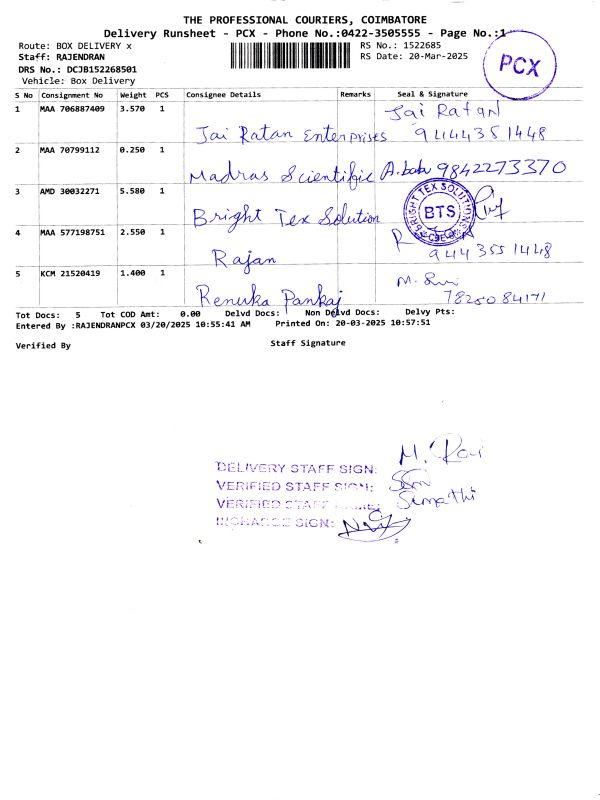 THE PROFESSIONAL COURIERS, COIMBATORE
Delivery Runsheet - PCX - Phone No.:0422-3505555 - Page No.:1
Route: BOX DELIVERY x
RS No.: 1522685
Staff: RAJENDRAN
RS Date: 20-Mar-2025
DRS No.: DCJB152268501
Vehicle: Box Delivery
PCX
S No Consignment No Weight PCS Consignee Details Remarks Seal & Signature
1 MAA 706887409 3.570 1 Jai Ratan Enterprises Jai Ratan
9444351448
2 MAA 70799112 0.250 1 Madras Scientific A.babu 9842273370
3 AMD 30032271 5.580 1 Bright Tex Solution BRIGHT TEX SOLUTIONS BTS
4 MAA 577198751 2.550 1 Rajan R
9443551448
5 KCM 21520419 1.400 1 Renuka Pankaj M.
7825084171
Tot Docs: 5 Tot COD Amt: 0.00 Delvd Docs: Non Delvd Docs: Delvy Pts:
Entered By :RAJENDRANPCX 03/20/2025 10:55:41 AM Printed On: 20-03-2025 10:57:51
Verified By Staff Signature
DELIVERY STAFF SIGN: M. Ravi
VERIFIED STAFF SIGN:
VERIFIED STAFF NAME: Sumathi
INCHARGE SIGN: